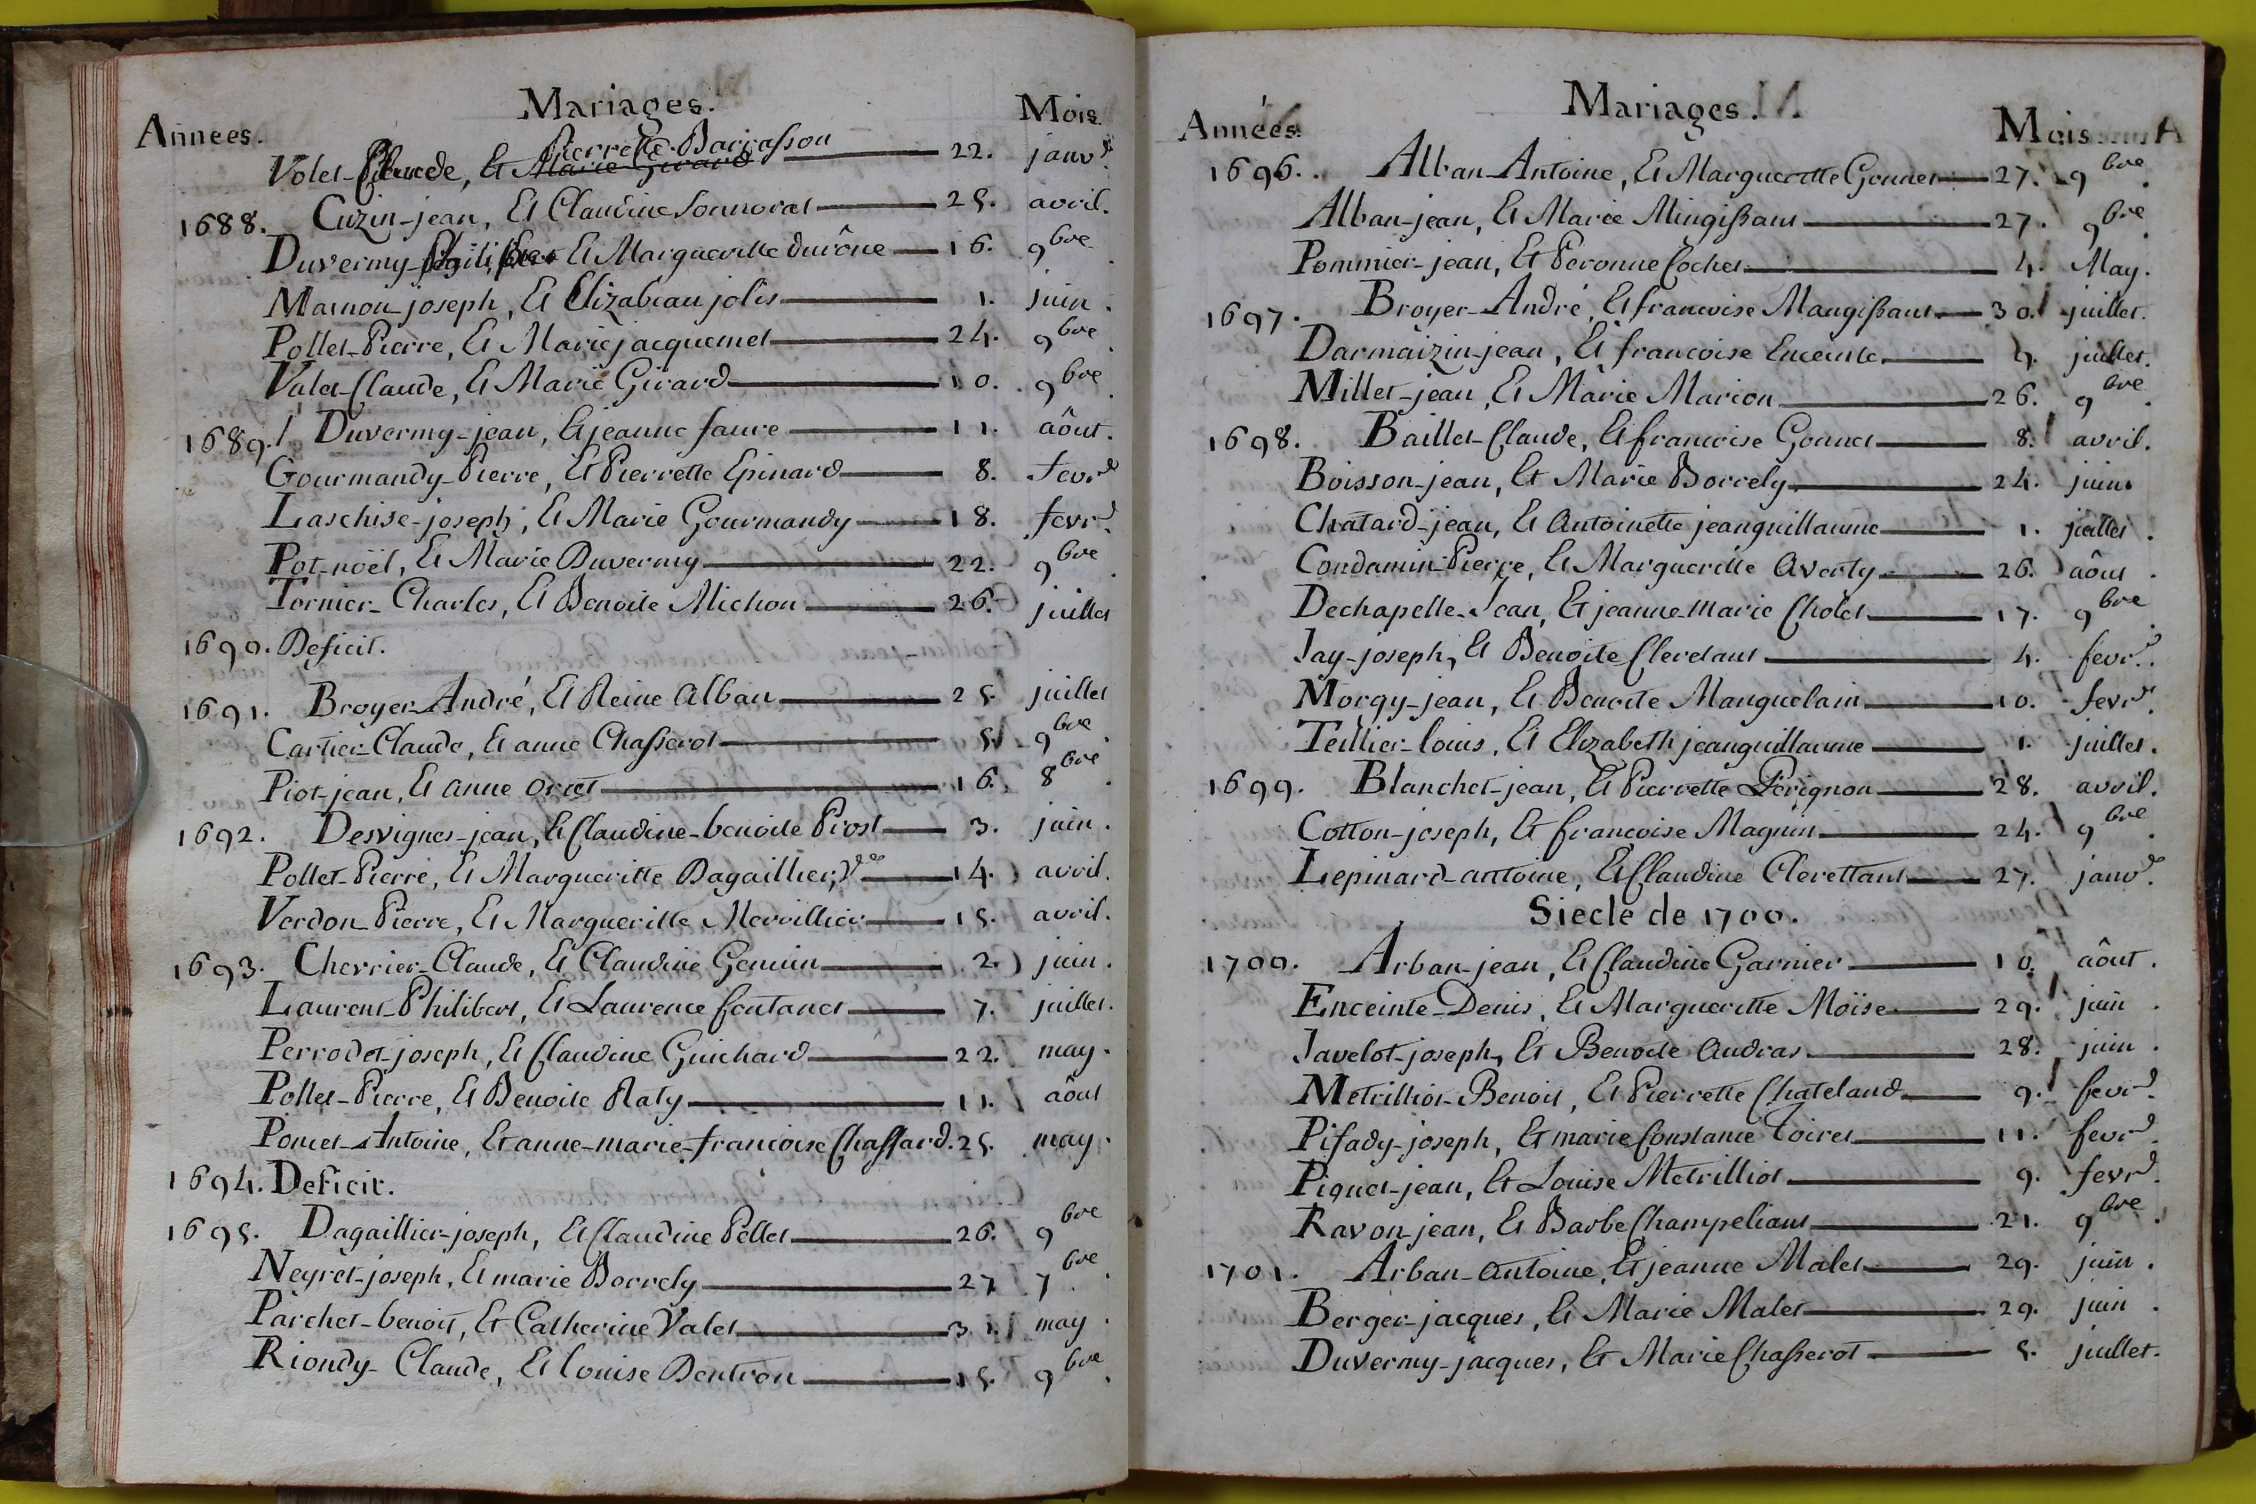 Mariages.
Années. Mois.
Volet- Et Pierrette Barrasson Marie Girard 22. janvr.
1688. Cuzin-jean, Et Claudine Sonnorat 25. avril.
Duvermy-philibert Et Marguerille durône 16. 9bre.
Marnon joseph, Et Elizabeau jolis 1. juin.
Pollet-Pierre, Et Marie jacquemet 24. 9bre.
Valet-Claude, Et Marie Girard 10. 9bre.
1689. Duvermy-jean, Et jeanne faure 11. aôut.
Gourmandy-Pierre, Et Pierrette Epinard 8. fevrr
Laschise-joseph, Et Marie Gourmandy 18. fevrr.
Pot-noël, Et Marie Duvermy 22. 9bre.
Tornier-Charles, Et Benoite Michon 26. juillet
1690. Deficit.
1691. Broyer-André, Et Reine alban 25. juillet
Cartier-Claude, Et anne Chasserot 5. 9bre.
Piot-jean, Et anne oriet 16. 8bre.
1692. Desvignes-jean, Et Claudine-benoite Prost 3. juin.
Pollet-Pierre, Et Margueritte Dagaillier, 14. avril.
Verdon-Pierre, Et Margueritte Mervillier 15. avril.
1693. Chevrier-Claude, Et Claudine Genuin 2. juin.
Laurent-Philibert, Et Laurence fontanet 7. juillet.
Perrodet-joseph, Et Claudine Guichard 22. may.
Pollet-Pierre, Et Benoite Raty 11. aôut
Poncet-Antoine, Et anne-marie-francoise Chassard. 25. may.
1694. Deficit.
1695. Dagaillier-joseph, Et Claudine Pellet 26. 9bre
Neyret-joseph, Et marie Borrely 27 7bre.
Parchet-benoit, Et Catherine Valet 31. may.
Riondy-Claude, Et louise Dentron 15. 9bre.
Mariages.
Années. Mois
1696. Alban-Antoine, Et Margueritte Gonnet 27. 9bre.
Alban-jean, Et Marie Mingissant 27. 9bre.
Pommier-jean, Et Peronne Cochet 4. May.
1697. Broyer-André, Et francoise Mangissant 30. juillet.
Darmaizin-jean, Et francoise Enceinte 4. juillet.
Millet-jean, Et Marie Marion 26. 9bre.
1698. Baillet-Claude, Et francoise Gonnet 8. avril.
Boisson-jean, Et Marie Borrely 24. juin.
Chatard-jean, Et Antoinette jeanguillaume 1. juillet.
Condamin-Pierre, Et Margueritte Averty 26. aôut.
Dechapelle-Jean, Et jeanne-marie Cholet 17. 9bre.
Jay-joseph, Et Benoite Cleretant 4. fevrr.
Morgy-jean, Et Benoite Manguelain 10. fevrr.
Teillier-louis, Et Elizabeth jeanguillaume 1. juillet.
1699. Blanchet-jean, Et Pierrette Perignon 28. avril.
Cotton-joseph, Et francoise Magnin 24. 9bre.
Lepinard-antoine, Et Claudine Clerettant 27. janvr.
Siecle de 1700.
1700. Arban-jean, Et Claudine Garnier 10. aôut.
Enceinte-Denis, Et Margueritte Moïse 29. juin.
Javelot-joseph, Et Benoite Audras 28. juin.
Metrilliot-Benoit, Et Pierrette Chateland 9. fevrr.
Pifady-joseph, Et marie Constance Toiret 11. fevrr.
Piquet-jean, Et Louise Metrilliot 9. fevrr.
Ravon-jean, Et Barbe Champeliant 21. 9bre.
1701. Arban-antoine, Et jeanne Malet 29. juin.
Berger-jacques, Et Marie Malet 29. juin.
Duvermy-jacques, Et Marie Chasserot 5. juillet.